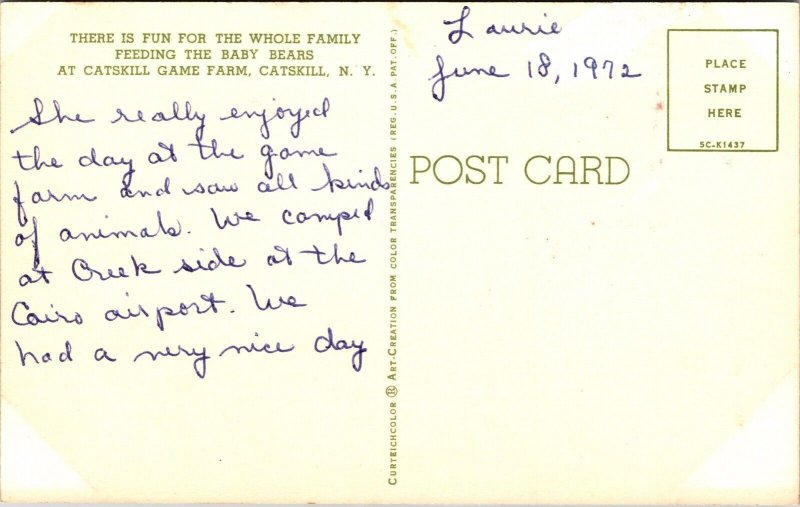 THERE IS FUN FOR THE WHOLE FAMILY
FEEDING THE BABY BEARS
AT CATSKILL GAME FARM, CATSKILL, N. Y.
She really enjoyed
the day at the game
farm and saw all kinds
of animals. We camped
at Creek side at the
Cairo airport. We
had a very nice day
CURTEICHCOLOR ® ART-CREATION FROM COLOR TRANSPARENCIES (REG. U.S.A. PAT. OFF.)
Laurie
June 18, 1972
POST CARD
PLACE
STAMP
HERE
5C-K1437